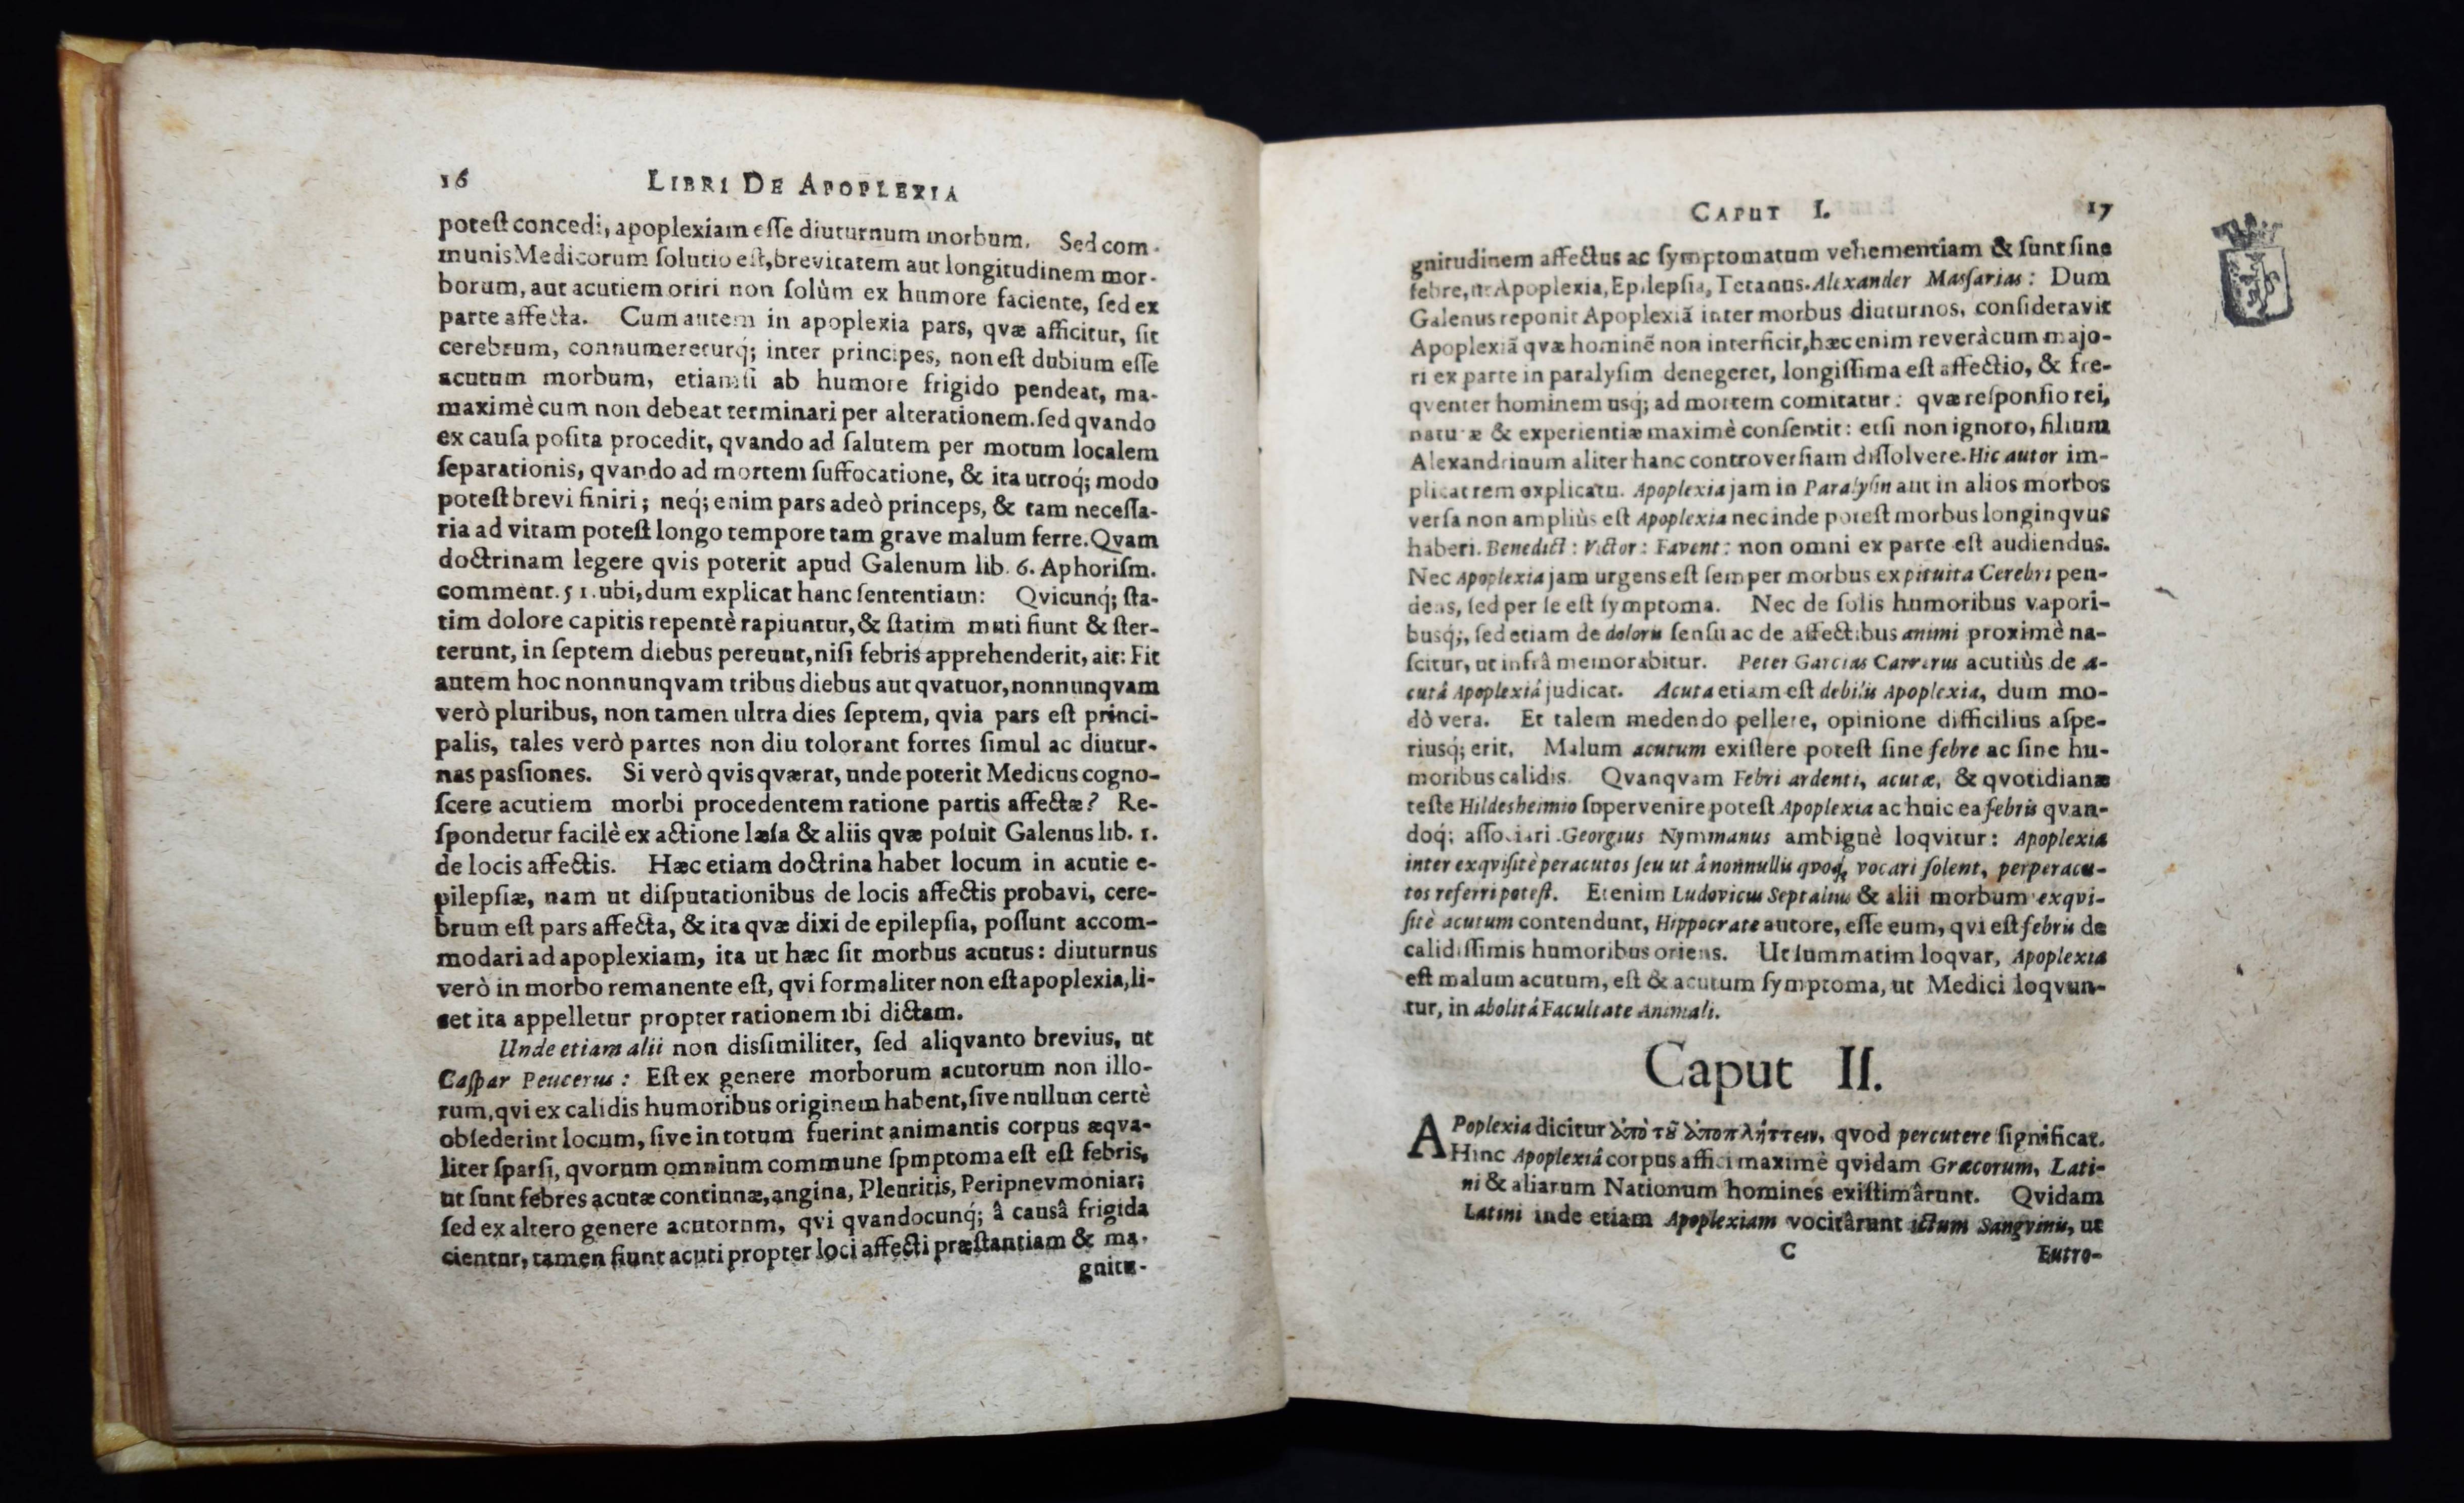 16 LIBRI DE APOPLEXIA
poteſt concedi, apoplexiam eſſe diuturnum morbum. Sed com-
munis Medicorum ſolutio eſt, brevitatem aut longitudinem mor-
borum, aut acutiem oriri non ſolùm ex humore faciente, ſed ex
parte affecta. Cum autem in apoplexia pars, qvæ afficitur, ſit
cerebrum, connumereturq́; inter principes, non eſt dubium eſſe
acutum morbum, etiamſi ab humore frigido pendeat, ma-
maximè cum non debeat terminari per alterationem. ſed qvando
ex cauſa poſita procedit, qvando ad ſalutem per motum localem
ſeparationis, qvando ad mortem ſuffocatione, & ita utroq́; modo
poteſt brevi finiri; neq́; enim pars adeò princeps, & tam neceſſa-
ria ad vitam poteſt longo tempore tam grave malum ferre. Qvam
doctrinam legere qvis poterit apud Galenum lib. 6. Aphoriſm.
comment. 51. ubi, dum explicat hanc ſententiam: Qvicunq́; ſta-
tim dolore capitis repentè rapiuntur, & ſtatim muti fiunt & ſter-
terunt, in ſeptem diebus pereunt, niſi febris apprehenderit, ait: Fit
autem hoc nonnunqvam tribus diebus aut qvatuor, nonnunqvam
verò pluribus, non tamen ultra dies ſeptem, qvia pars eſt princi-
palis, tales verò partes non diu tolorant fortes ſimul ac diutur-
nas paſsiones. Si verò qvis qværat, unde poterit Medicus cogno-
ſcere acutiem morbi procedentem ratione partis affectæ? Re-
ſpondetur facilè ex actione læſa & aliis qvæ poſuit Galenus lib. 1.
de locis affectis. Hæc etiam doctrina habet locum in acutie e-
pilepſiæ, nam ut diſputationibus de locis affectis probavi, cere-
brum eſt pars affecta, & ita qvæ dixi de epilepſia, poſſunt accom-
modari ad apoplexiam, ita ut hæc ſit morbus acutus: diuturnus
verò in morbo remanente eſt, qvi formaliter non eſt apoplexia, li-
cet ita appelletur propter rationem ibi dictam.
Unde etiam alii non diſsimiliter, ſed aliqvanto brevius, ut
Caſpar Peucerus: Eſt ex genere morborum acutorum non illo-
rum, qvi ex calidis humoribus originem habent, ſive nullum certè
obſederint locum, ſive in totum fuerint animantis corpus æqva-
liter ſparſi, qvorum omnium commune ſpmptoma eſt eſt febris,
ut ſunt febres acutæ continnæ, angina, Pleuritis, Peripnevmoniar;
ſed ex altero genere acutornm, qvi qvandocunq́; â causâ frigida
cientur, tamen fiunt acuti propter loci affecti præſtantiam & ma-
gnitu-
CAPUT I. 17
gnitudinem affectus ac ſymptomatum vehementiam & ſunt ſine
febre, ut Apoplexia, Epilepſia, Tetanus. Alexander Maſſarias: Dum
Galenus reponit Apoplexiã inter morbus diuturnos, conſideravit
Apoplexiã qvæ hominẽ non interficit, hæc enim reveràcum majo-
ri ex parte in paralyſim denegeret, longiſſima eſt affectio, & fre-
qventer hominem usq́; ad mortem comitatur: qvæ reſponſio rei,
naturæ & experientiæ maximè conſentit: etſi non ignoro, filium
Alexandrinum aliter hanc controverſiam diſſolvere. Hic autor im-
plicat rem explicatu. Apoplexia jam in Paralyſin aut in alios morbos
verſa non ampliùs eſt Apoplexia nec inde poteſt morbus longinqvus
haberi. Benedict: Victor: Favent: non omni ex parte eſt audiendus.
Nec Apoplexia jam urgens eſt ſemper morbus ex pituita Cerebri pen-
dens, ſed per ſe eſt ſymptoma. Nec de ſolis humoribus vapori-
busq́;, ſed etiam de doloris ſenſu ac de affectibus animi proximè na-
ſcitur, ut infrâ memorabitur. Peter Garcias Carrerus acutiùs de a-
cutâ Apoplexiâ judicat. Acuta etiam eſt debilis Apoplexia, dum mo-
dò vera. Et talem medendo pellere, opinione difficilius aſpe-
riusq́; erit. Malum acutum exiſtere poteſt ſine febre ac ſine hu-
moribus calidis. Qvanqvam Febri ardenti, acutæ, & qvotidianæ
teſte Hildesheimio ſupervenire poteſt Apoplexia ac huic ea febris qvan-
doq́; aſſociari. Georgius Nymmanus ambiguè loqvitur: Apoplexia
inter exqviſitè peracutos ſeu ut â nonnullis qvoq́; vocari ſolent, perperacu-
tos referri poteſt. Etenim Ludovicus Septalius & alii morbum exqvi-
ſitè acutum contendunt, Hippocrate autore, eſſe eum, qvi eſt febris de
calidiſſimis humoribus oriens. Ut ſummatim loqvar, Apoplexia
eſt malum acutum, eſt & acutum ſymptoma, ut Medici loqvun-
tur, in abolitâ Facultate Animali.
Caput II.
APoplexia dicitur ἀπὸ τȣ͂ ἀποπλήττειν, qvod percutere ſignificat.
Hinc Apoplexiâ corpus affici maximè qvidam Græcorum, Lati-
ni & aliarum Nationum homines exiſtimârunt. Qvidam
Latini inde etiam Apoplexiam vocitârunt ictum Sangvinis, ut
C Eutro-